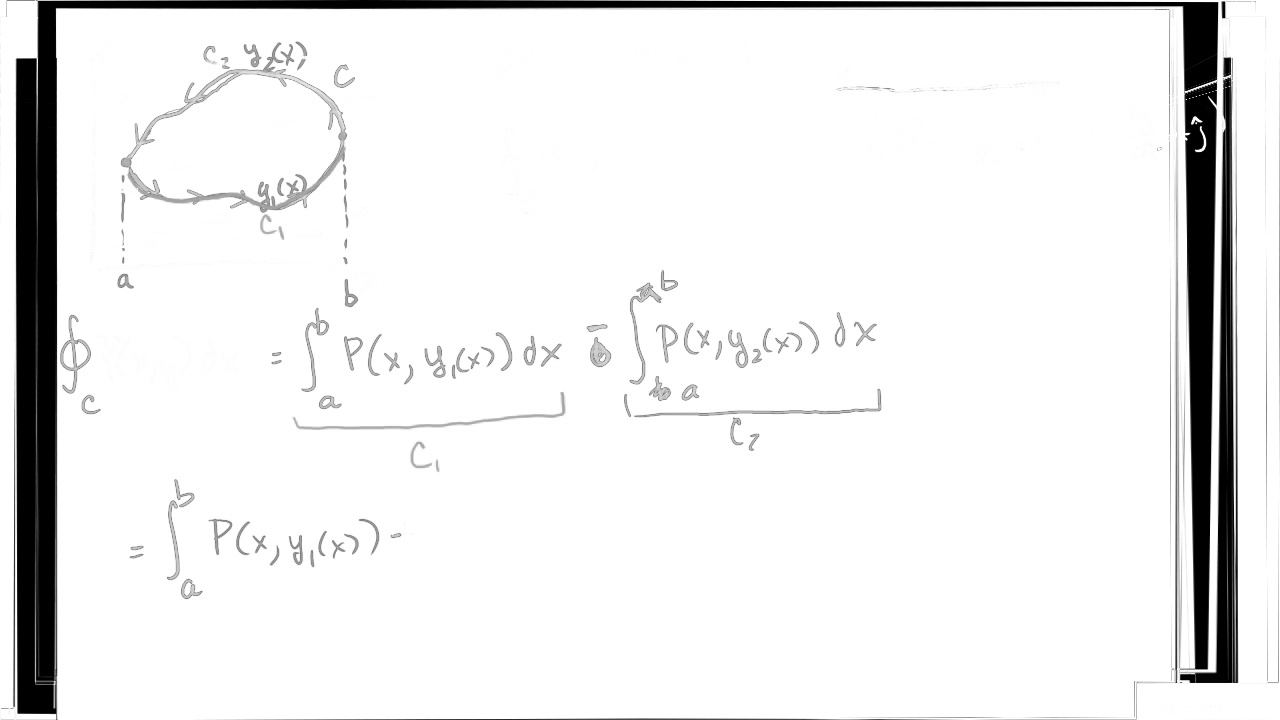 C₂ y₂(x) C
y₁(x)
C₁
a b
∮_C = ∫_a^b P(x, y₁(x)) dx - ∫_a^b P(x, y₂(x)) dx
C₁ C₂
= ∫_a^b P(x, y₁(x)) -
ĵ)